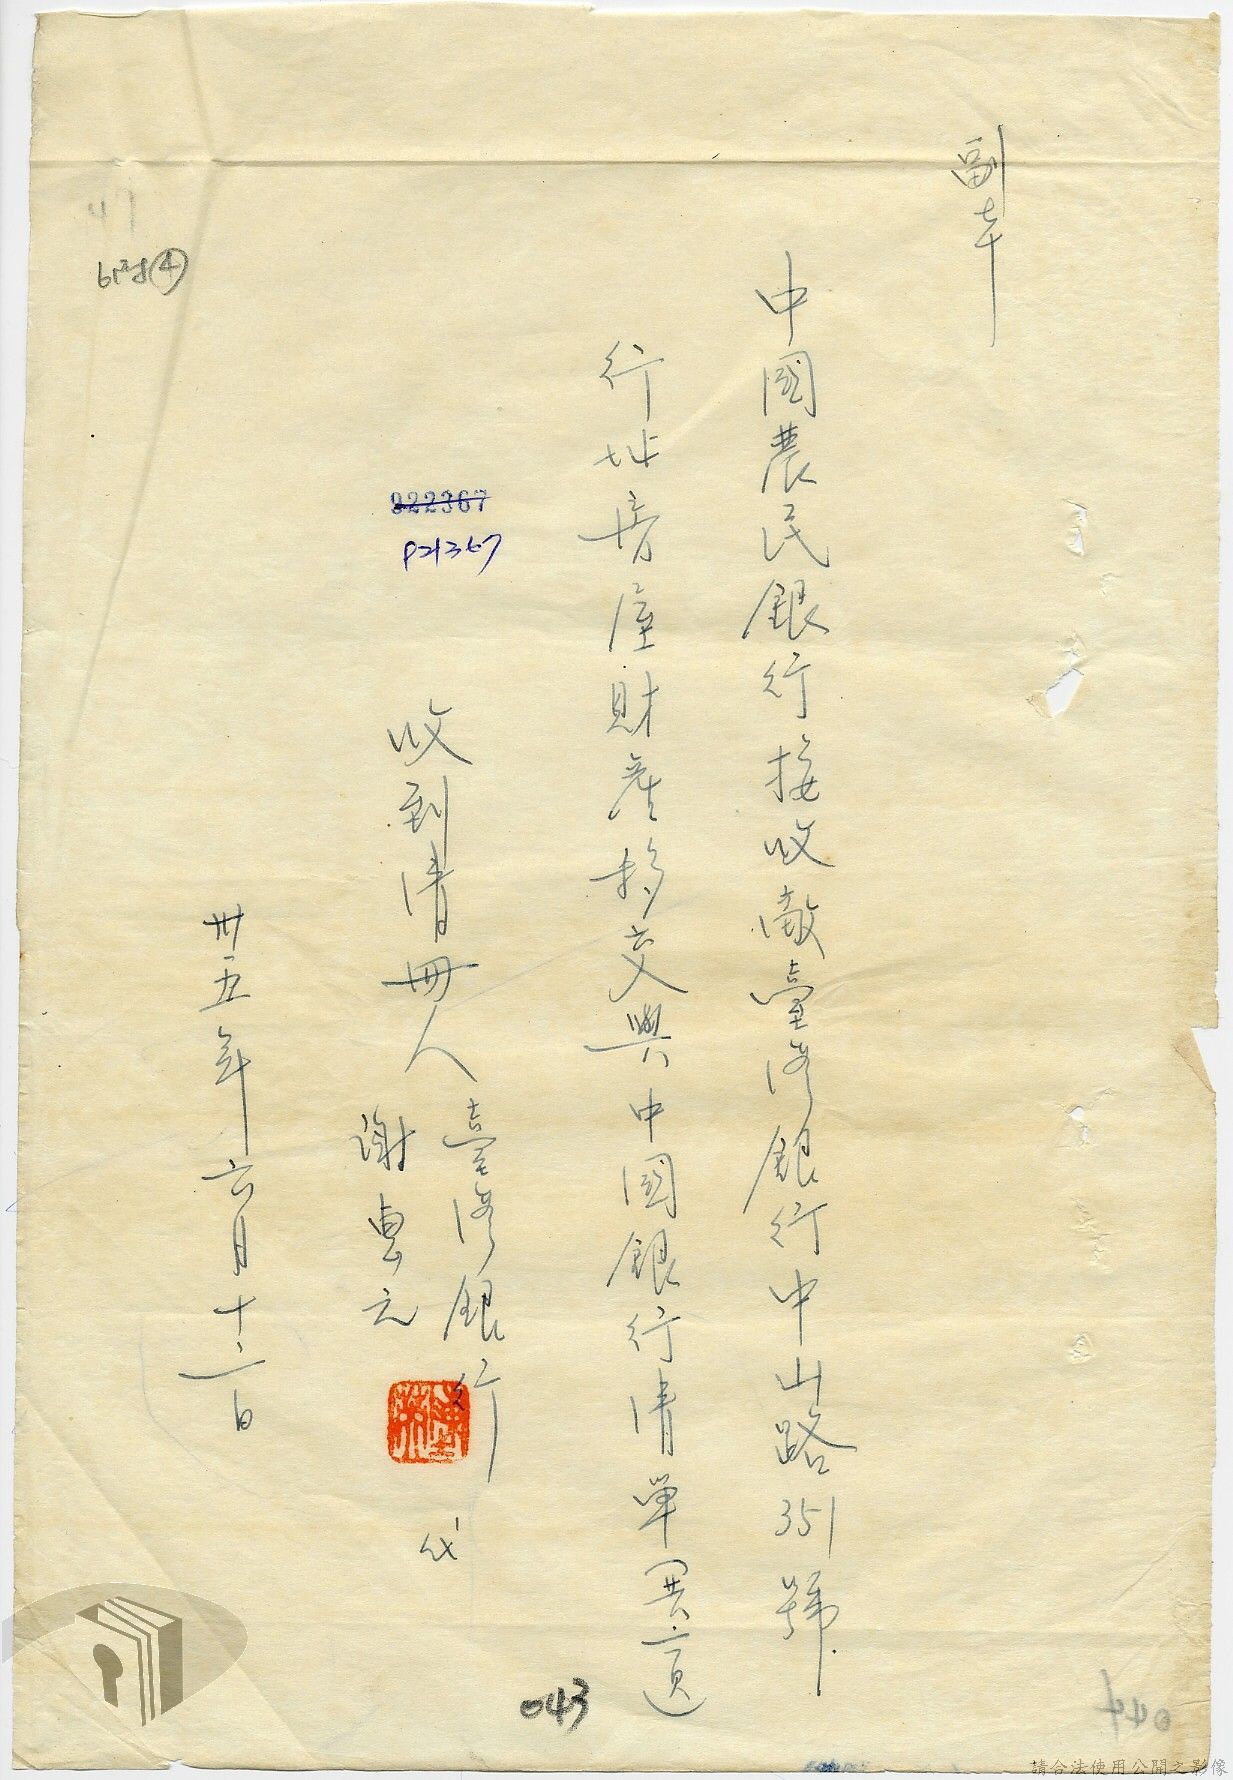 副本
中國農民銀行接收敵臺灣銀行中山路351號
行址房屋財產移交與中國銀行清單買頁
收到清冊人
臺灣銀行
謝東元
代
卅五年六月十二日
922367
P21367
附④
043
044
請合法使用公開之影像